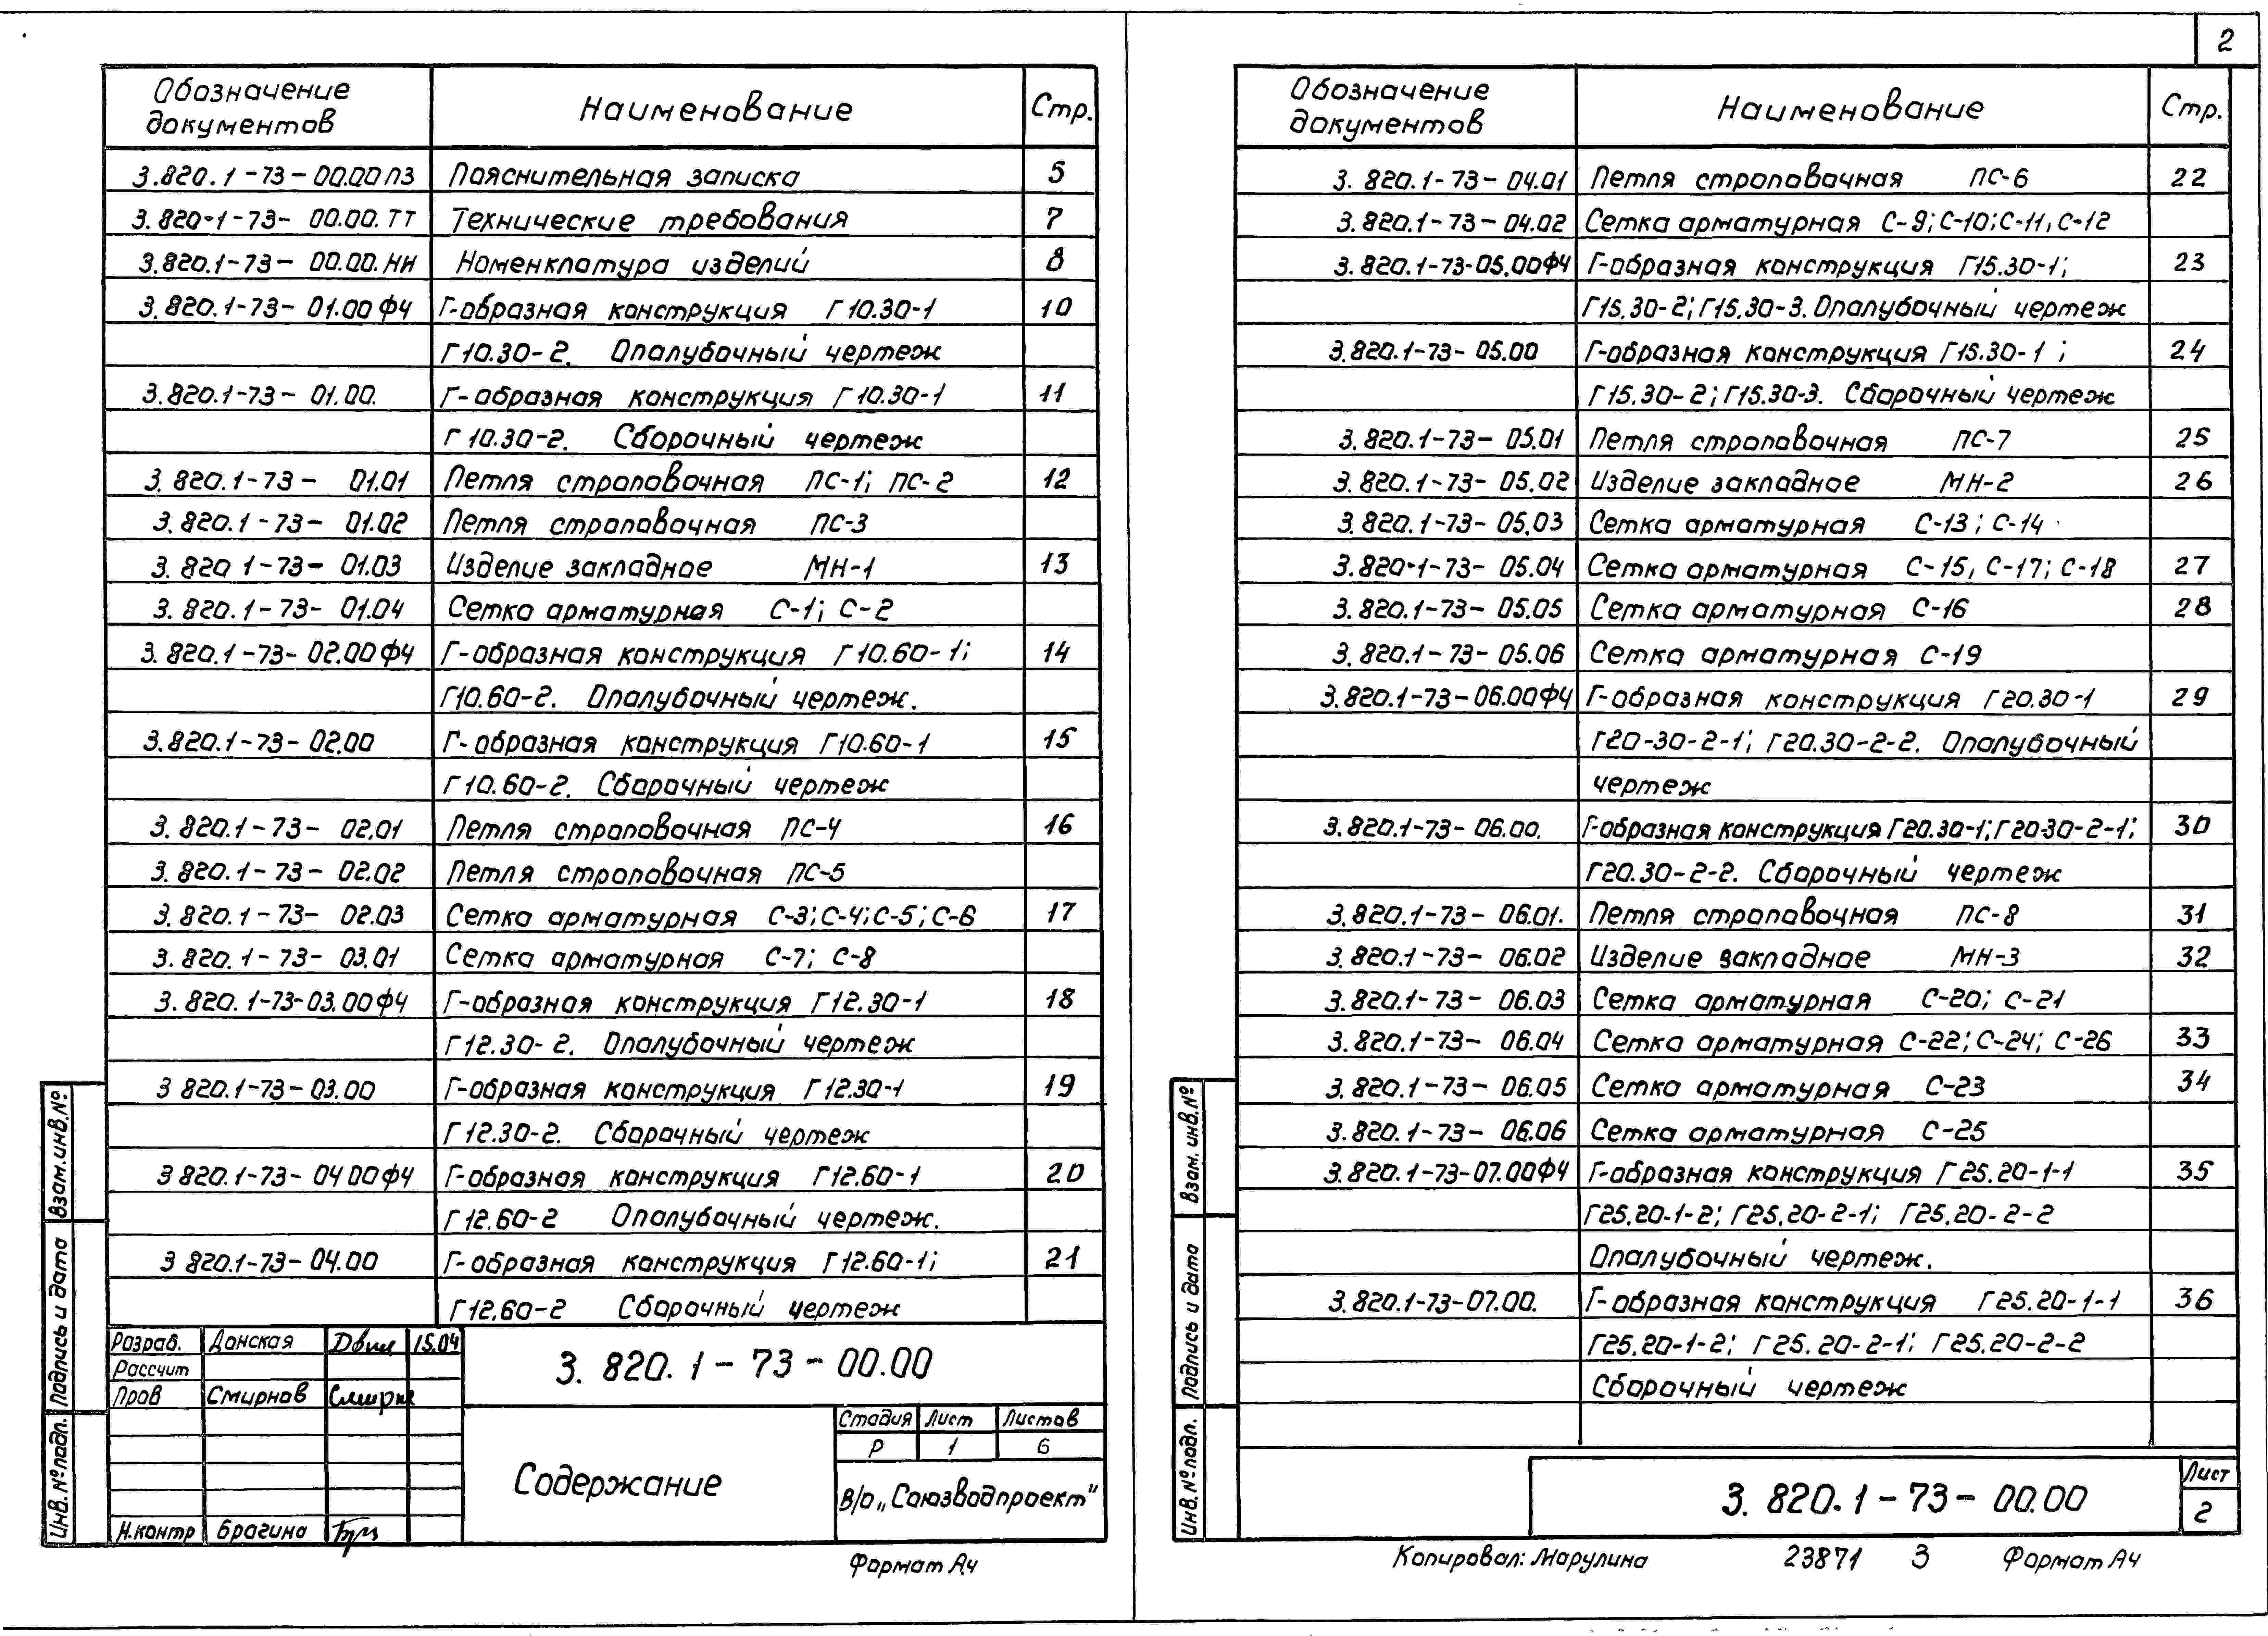 2
Обозначение документов | Наименование | Стр.
3.820.1-73-00.00ПЗ | Пояснительная записка | 5
3.820.1-73-00.00.ТТ | Технические требования | 7
3.820.1-73-00.00.НИ | Номенклатура изделий | 8
3.820.1-73-01.00ФЧ | Г-образная конструкция Г10.30-1 | 10
Г10.30-2. Опалубочный чертеж
3.820.1-73-01.00. | Г-образная конструкция Г10.30-1 | 11
Г10.30-2. Сборочный чертеж
3.820.1-73- 01.01 | Петля строповочная ПС-1; ПС-2 | 12
3.820.1-73- 01.02 | Петля строповочная ПС-3
3.820 1-73- 01.03 | Изделие закладное МН-1 | 13
3.820.1-73- 01.04 | Сетка арматурная С-1; С-2
3.820.1-73-02.00ФЧ | Г-образная конструкция Г10.60-1; | 14
Г10.60-2. Опалубочный чертеж.
3.820.1-73-02.00 | Г-образная конструкция Г10.60-1 | 15
Г10.60-2. Сборочный чертеж
3.820.1-73- 02.01 | Петля строповочная ПС-4 | 16
3.820.1-73- 02.02 | Петля строповочная ПС-5
3.820.1-73- 02.03 | Сетка арматурная С-3; С-4; С-5; С-6 | 17
3.820.1-73- 03.01 | Сетка арматурная С-7; С-8
3.820.1-73-03.00ФЧ | Г-образная конструкция Г12.30-1 | 18
Г12.30-2. Опалубочный чертеж
3 820.1-73-03.00 | Г-образная конструкция Г12.30-1 | 19
Г12.30-2. Сборочный чертеж
3 820.1-73-04 00ФЧ | Г-образная конструкция Г12.60-1 | 20
Г12.60-2 Опалубочный чертеж.
3 820.1-73-04.00 | Г-образная конструкция Г12.60-1; | 21
Г12.60-2 Сборочный чертеж
Взам.инв.№
Подпись и дата
Инв.№подл.
Разраб. Донская 15.04
Рассчит
Пров Смирнов
Н.контр Брагина
3.820.1-73-00.00
Содержание
Стадия Лист Листов
Р 1 6
В/о „Союзводпроект"
Формат А4
Обозначение документов | Наименование | Стр.
3.820.1-73-04.01 | Петля строповочная ПС-6 | 22
3.820.1-73-04.02 | Сетка арматурная С-9; С-10; С-11, С-12
3.820.1-73-05.00ФЧ | Г-образная конструкция Г15.30-1; | 23
Г15.30-2; Г15.30-3. Опалубочный чертеж
3.820.1-73-05.00 | Г-образная конструкция Г15.30-1; | 24
Г15.30-2; Г15.30-3. Сборочный чертеж
3.820.1-73- 05.01 | Петля строповочная ПС-7 | 25
3.820.1-73- 05.02 | Изделие закладное МН-2 | 26
3.820.1-73- 05.03 | Сетка арматурная С-13; С-14
3.820.1-73- 05.04 | Сетка арматурная С-15, С-17; С-18 | 27
3.820.1-73- 05.05 | Сетка арматурная С-16 | 28
3.820.1-73- 05.06 | Сетка арматурная С-19
3.820.1-73-06.00ФЧ | Г-образная конструкция Г20.30-1 | 29
Г20-30-2-1; Г20.30-2-2. Опалубочный
чертеж
3.820.1-73-06.00. | Г-образная конструкция Г20.30-1; Г20-30-2-1; | 30
Г20.30-2-2. Сборочный чертеж
3.820.1-73- 06.01. | Петля строповочная ПС-8 | 31
3.820.1-73- 06.02 | Изделие закладное МН-3 | 32
3.820.1-73- 06.03 | Сетка арматурная С-20; С-21
3.820.1-73- 06.04 | Сетка арматурная С-22; С-24; С-26 | 33
3.820.1-73- 06.05 | Сетка арматурная С-23 | 34
3.820.1-73- 06.06 | Сетка арматурная С-25
3.820.1-73-07.00ФЧ | Г-образная конструкция Г25.20-1-1 | 35
Г25.20-1-2; Г25.20-2-1; Г25.20-2-2
Опалубочный чертеж.
3.820.1-73-07.00. | Г-образная конструкция Г25.20-1-1 | 36
Г25.20-1-2; Г25.20-2-1; Г25.20-2-2
Сборочный чертеж
Взам. инв.№
Подпись и дата
Инв.№подл.
3.820.1-73-00.00
Лист
2
Копировал: Марулина 23871 3 Формат А4